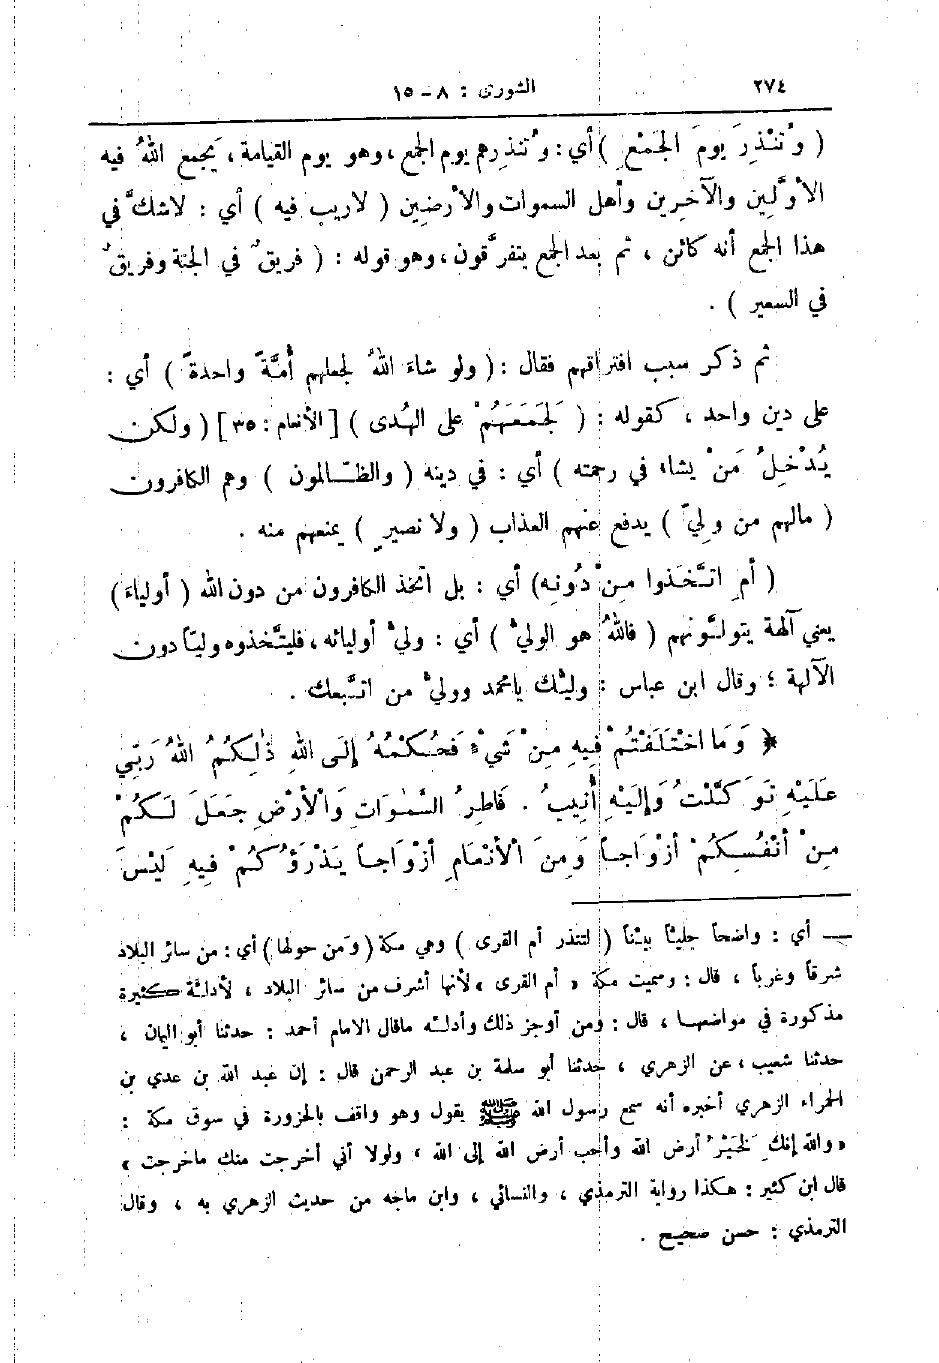 ٢٧٤ الشورى : ٨ - ١٥
( وتُنْذِرَ يومَ الجَمْعِ ) أي : وتُنذِرهم يوم الجمع ، وهو يوم القيامة ، يَجمع اللهُ فيه
الأوَّلِين والآخِرِين وأهل السموات والأرضِين ( لاريب فيه ) أي : لاشكَّ في
هذا الجمع أنه كائن ، ثم بعد الجمع يتفرَّقون ، وهو قوله : ( فريقٌ في الجنة وفريقٌ
في السعير ) .
ثم ذكر سبب افتراقهم فقال : ( ولو شاءَ اللهُ لجعلهم أُمَّةً واحدةً ) أي :
على دين واحد ، كقوله : ( لَجَمَعَهُمْ على الهُدى ) [ الأنعام : ٣٥ ] ( ولكن
يُدْخِلُ مَنْ يشاء في رحمته ) أي : في دينه ( والظَّالمون ) وهم الكافرون
( مالهم من وليٍّ ) يدفع عنهم العذاب ( ولا نصيرٍ ) يمنعهم منه .
( أمِ اتَّخَذوا مِنْ دُونِه ) أي : بل اتخذ الكافرون من دون الله ( أولياءَ )
يعني آلهة يتولَّونهم ( فاللهُ هو الوليُّ ) أي : وليُّ أوليائه ، فليتَّخذوه وليّاً دون
الآلهة ؛ وقال ابن عباس : وليُّك يامحمد ووليُّ من اتَّبعك .
﴿ وَمَا اخْتَلَفْتُمْ فِيهِ مِنْ شَيْءٍ فَحُكْمُهُ إِلَى اللهِ ذٰلِكُمُ اللهُ رَبِّي
عَلَيْهِ تَوَكَّلْتُ وَإِلَيْهِ أُنِيبُ . فَاطِرُ السَّمٰوَاتِ وَالْأَرْضِ جَعَلَ لَكُمْ
مِنْ أَنْفُسِكُمْ أَزْوَاجاً وَمِنَ الْأَنْعَامِ أَزْوَاجاً يَذْرَؤُكُمْ فِيهِ لَيْسَ
— أي : واضحاً جليّاً بيّناً ( لتنذر أم القرى ) وهي مكة ( ومَن حولها ) أي : من سائر البلاد
شرقاً وغرباً ، قال : وسميت مكة « أم القرى » لأنها أشرف من سائر البلاد ، لأدلة كثيرة
مذكورة في مواضعها ، قال : ومن أوجز ذلك وأدله ماقال الامام أحمد : حدثنا أبو اليمان ،
حدثنا شعيب ، عن الزهري ، حدثنا أبو سلمة بن عبد الرحمن قال : إن عبد الله بن عدي بن
الحمراء الزهري أخبره أنه سمع رسول الله ﷺ يقول وهو واقف بالحزورة في سوق مكة :
« والله إنكِ لَخَيْرُ أرض الله وأحب أرض الله إلى الله ، ولولا أني أخرجت منك ماخرجت »
قال ابن كثير : هكذا رواية الترمذي ، والنسائي ، وابن ماجه من حديث الزهري به ، وقال
الترمذي : حسن صحيح .